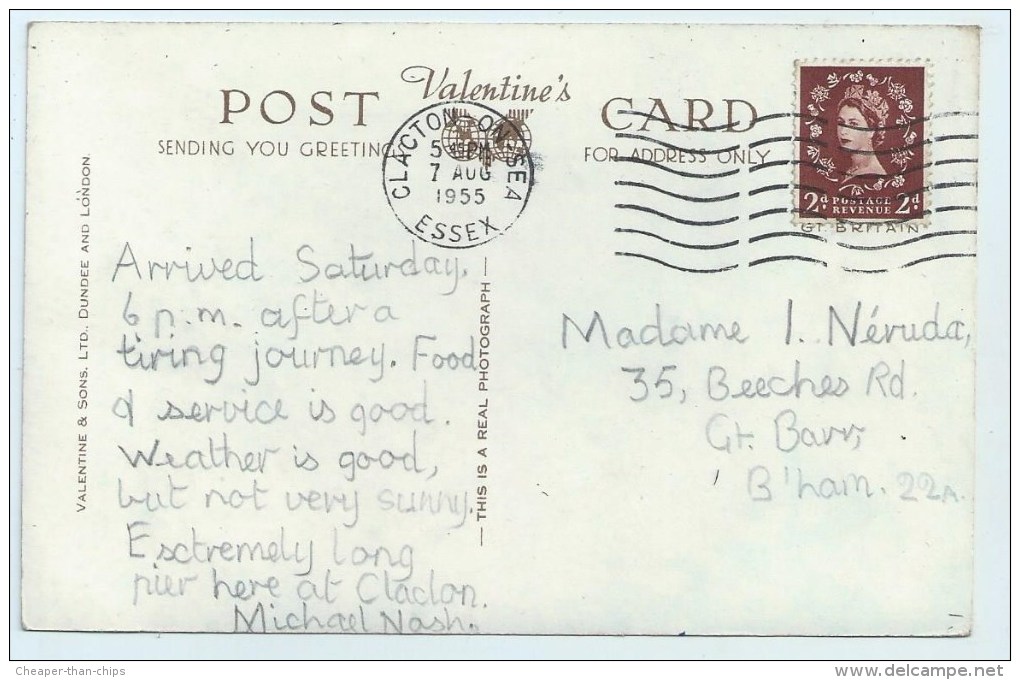 Valentine's
POST CARD
SENDING YOU GREETING
FOR ADDRESS ONLY
CLACTON-ON-SEA
PM
7 AUG
1955
ESSEX
2d POSTAGE REVENUE 2d
GT. BRITAIN
VALENTINE & SONS, LTD., DUNDEE AND LONDON.
Arrived Saturday,
6 p.m. after a
tiring journey. Food
& service is good.
Weather is good,
but not very sunny.
Esctremely long
pier here at Clacton.
Michael Nash.
— THIS IS A REAL PHOTOGRAPH —
Madame I. Néruda,
35, Beeches Rd.
Gt. Barr,
B'ham. 22A.
Cheaper-than-chips
www.delcampe.net